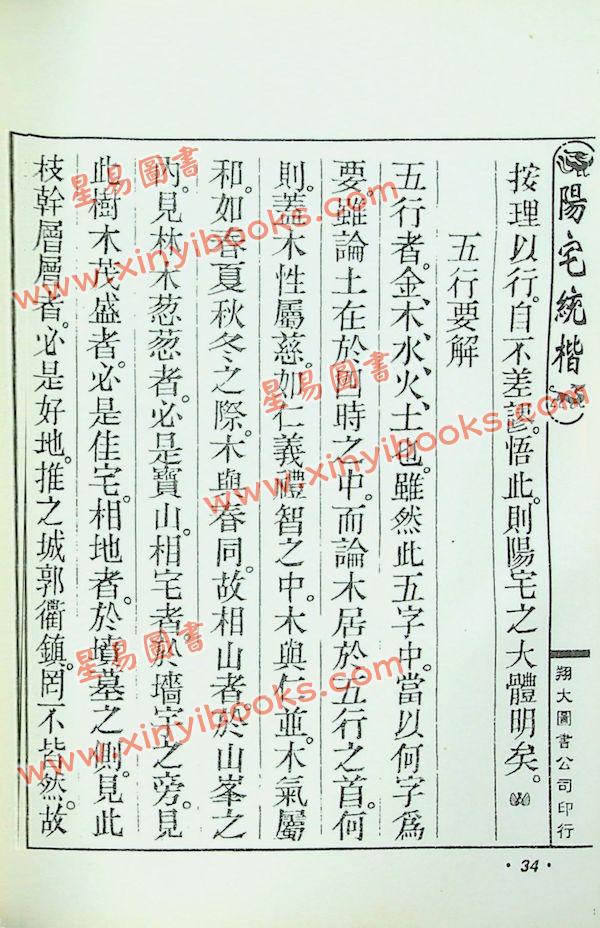 陽宅統楷
翔大圖書公司印行
按理以行。自不差誤。悟此。則陽宅之大體明矣。
五行要解
五行者。金、木、水、火、土也。雖然此五字中。當以何字爲
要。雖論土在於四時之中。而論木居於五行之首。何
則。蓋木性屬慈。如仁義禮智之中。木與仁並。木氣屬
和。如春夏秋冬之際。木與春同。故相山者。於山峯之
內。見林木葱葱者。必是寶山。相宅者。於墻宇之旁。見
此樹木茂盛者。必是佳宅。相地者。於墳墓之側。見此
枝幹層層者。必是好地。推之城郭衢鎮。罔不皆然。故
·34·
星易圖書
www.xinyibooks.com
星易圖書
www.xinyibooks.com
星易圖書
www.xinyibooks.com